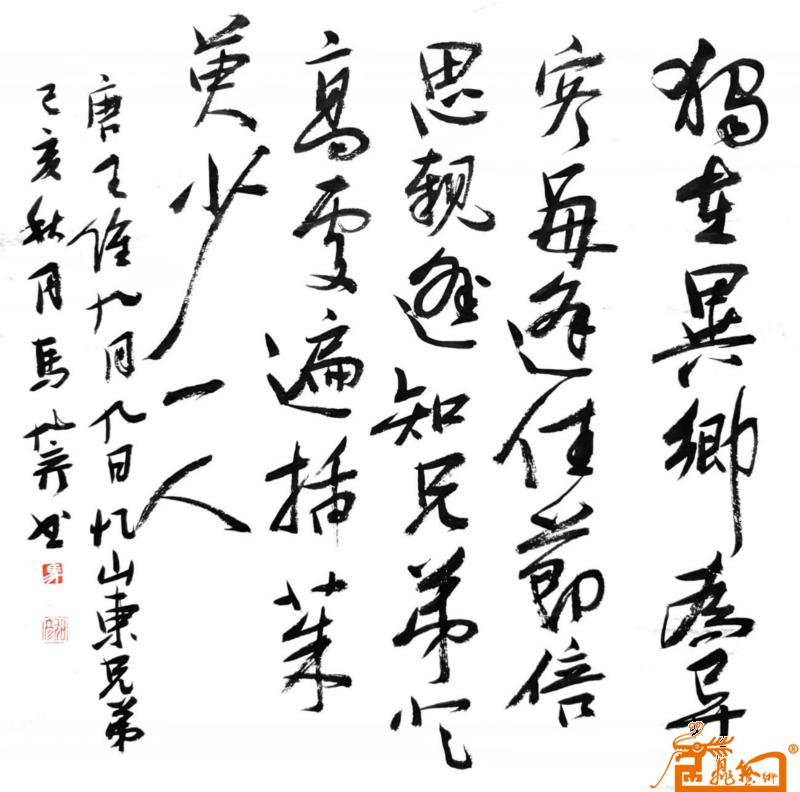 獨在異鄉為异
客每逢佳節倍
思親遙知兄弟登
高處遍插茱
萸少一人
唐王維九月九日忆山東兄弟
己亥秋月馬書